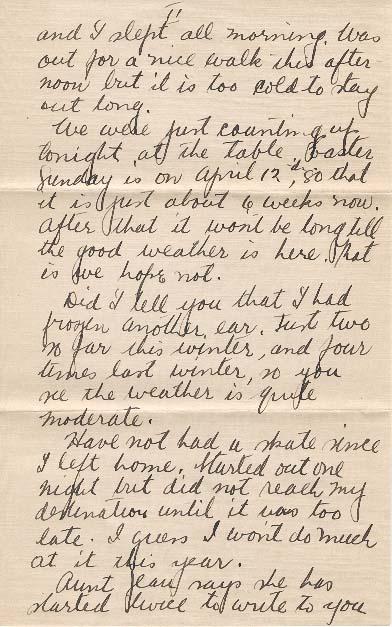 II
and I slept all morning. Was
out for a nice walk this after
noon but it is too cold to stay
out long.
We were just counting up
tonight, at the table, Easter
Sunday is on April 12", so that
it is just about 6 weeks now.
After that it won't be long till
the good weather is here. That
is we hope not.
Did I tell you that I had
frozen another ear. Just two
so far this winter, and four
times last winter, so you
see the weather is quite
moderate.
Have not had a skate since
I left home. Started out one
night but did not reach my
destination until it was too
late. I guess I won't do much
at it this year.
Aunt Jean says she has
started twice to write to you